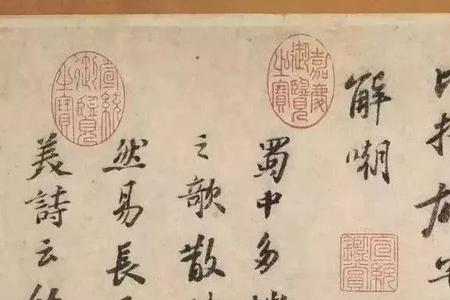 解嘲
蜀中多
之歌散
然易長
美詩云
嘉慶御覽之寶
宣統御覽之寶
宣統鑑賞